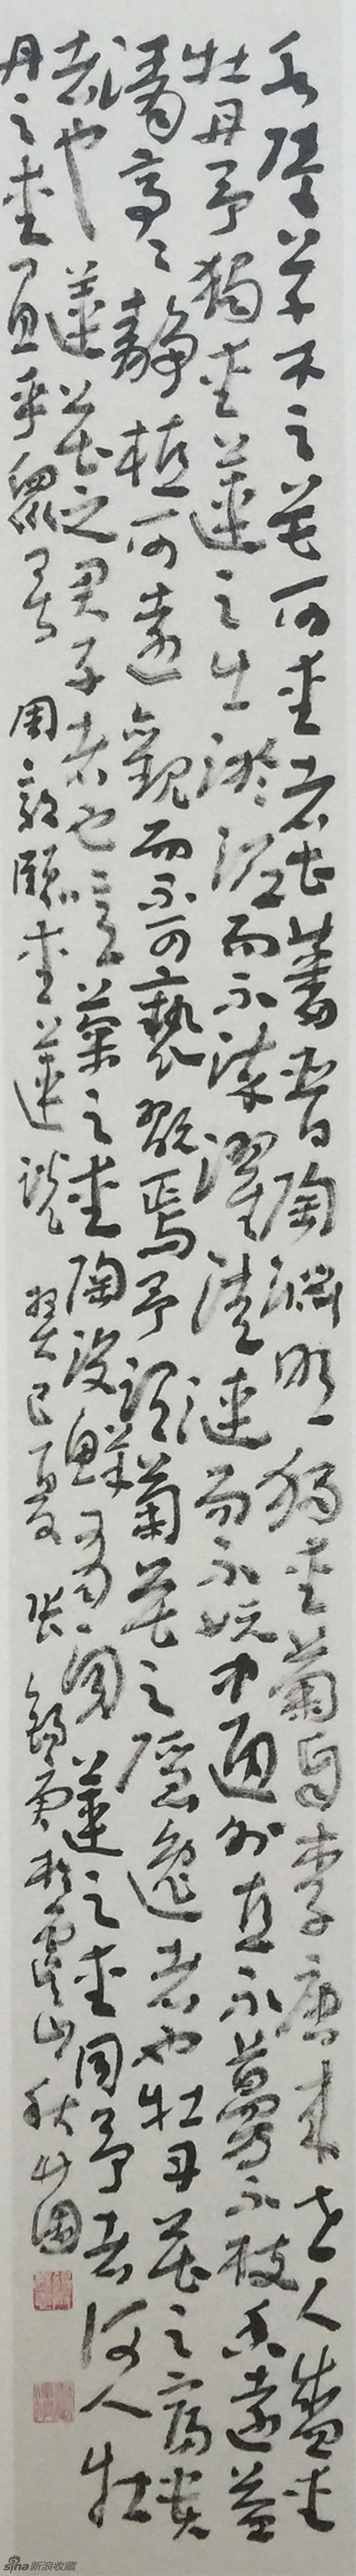 水陸草木之花可愛者甚蕃晉陶淵明獨愛菊自李唐来世人盛愛
牡丹予獨愛蓮之出淤泥而不染濯清漣而不妖中通外直不蔓不枝香遠益
清亭々静植可遠觀而不可褻翫焉予謂菊花之隱逸者也牡丹花之富貴
者也蓮花之君子者也噫菊之愛陶後鮮有聞蓮之愛同予者何人牡
丹之愛宜乎眾矣 周敦頤愛蓮説 癸巳夏 張 於虞山
sina新浪收藏